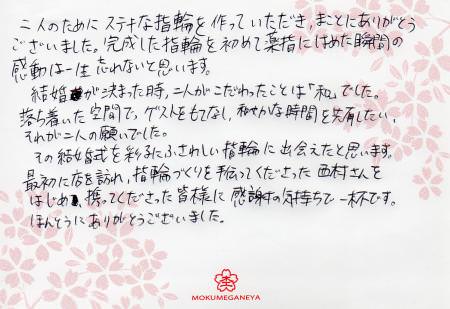 二人のためにステキな指輪を作っていただき、まことにありがとう
ございました。完成した指輪を初めて薬指にはめた瞬間の
感動は一生忘れないと思います。
結婚が決まった時、二人がこだわったことは「和」でした。
落ち着いた空間で、ゲストをもてなし、和やかな時間を共有したい、
それが二人の願いでした。
その結婚式を彩るにふさわしい指輪に出会えたと思います。
最初に店を訪れ、指輪づくりを手伝ってくださった西村さんを
はじめ、携ってくださった皆様に感謝の気持ちで一杯です。
ほんとうにありがとうございました。
MOKUMEGANEYA